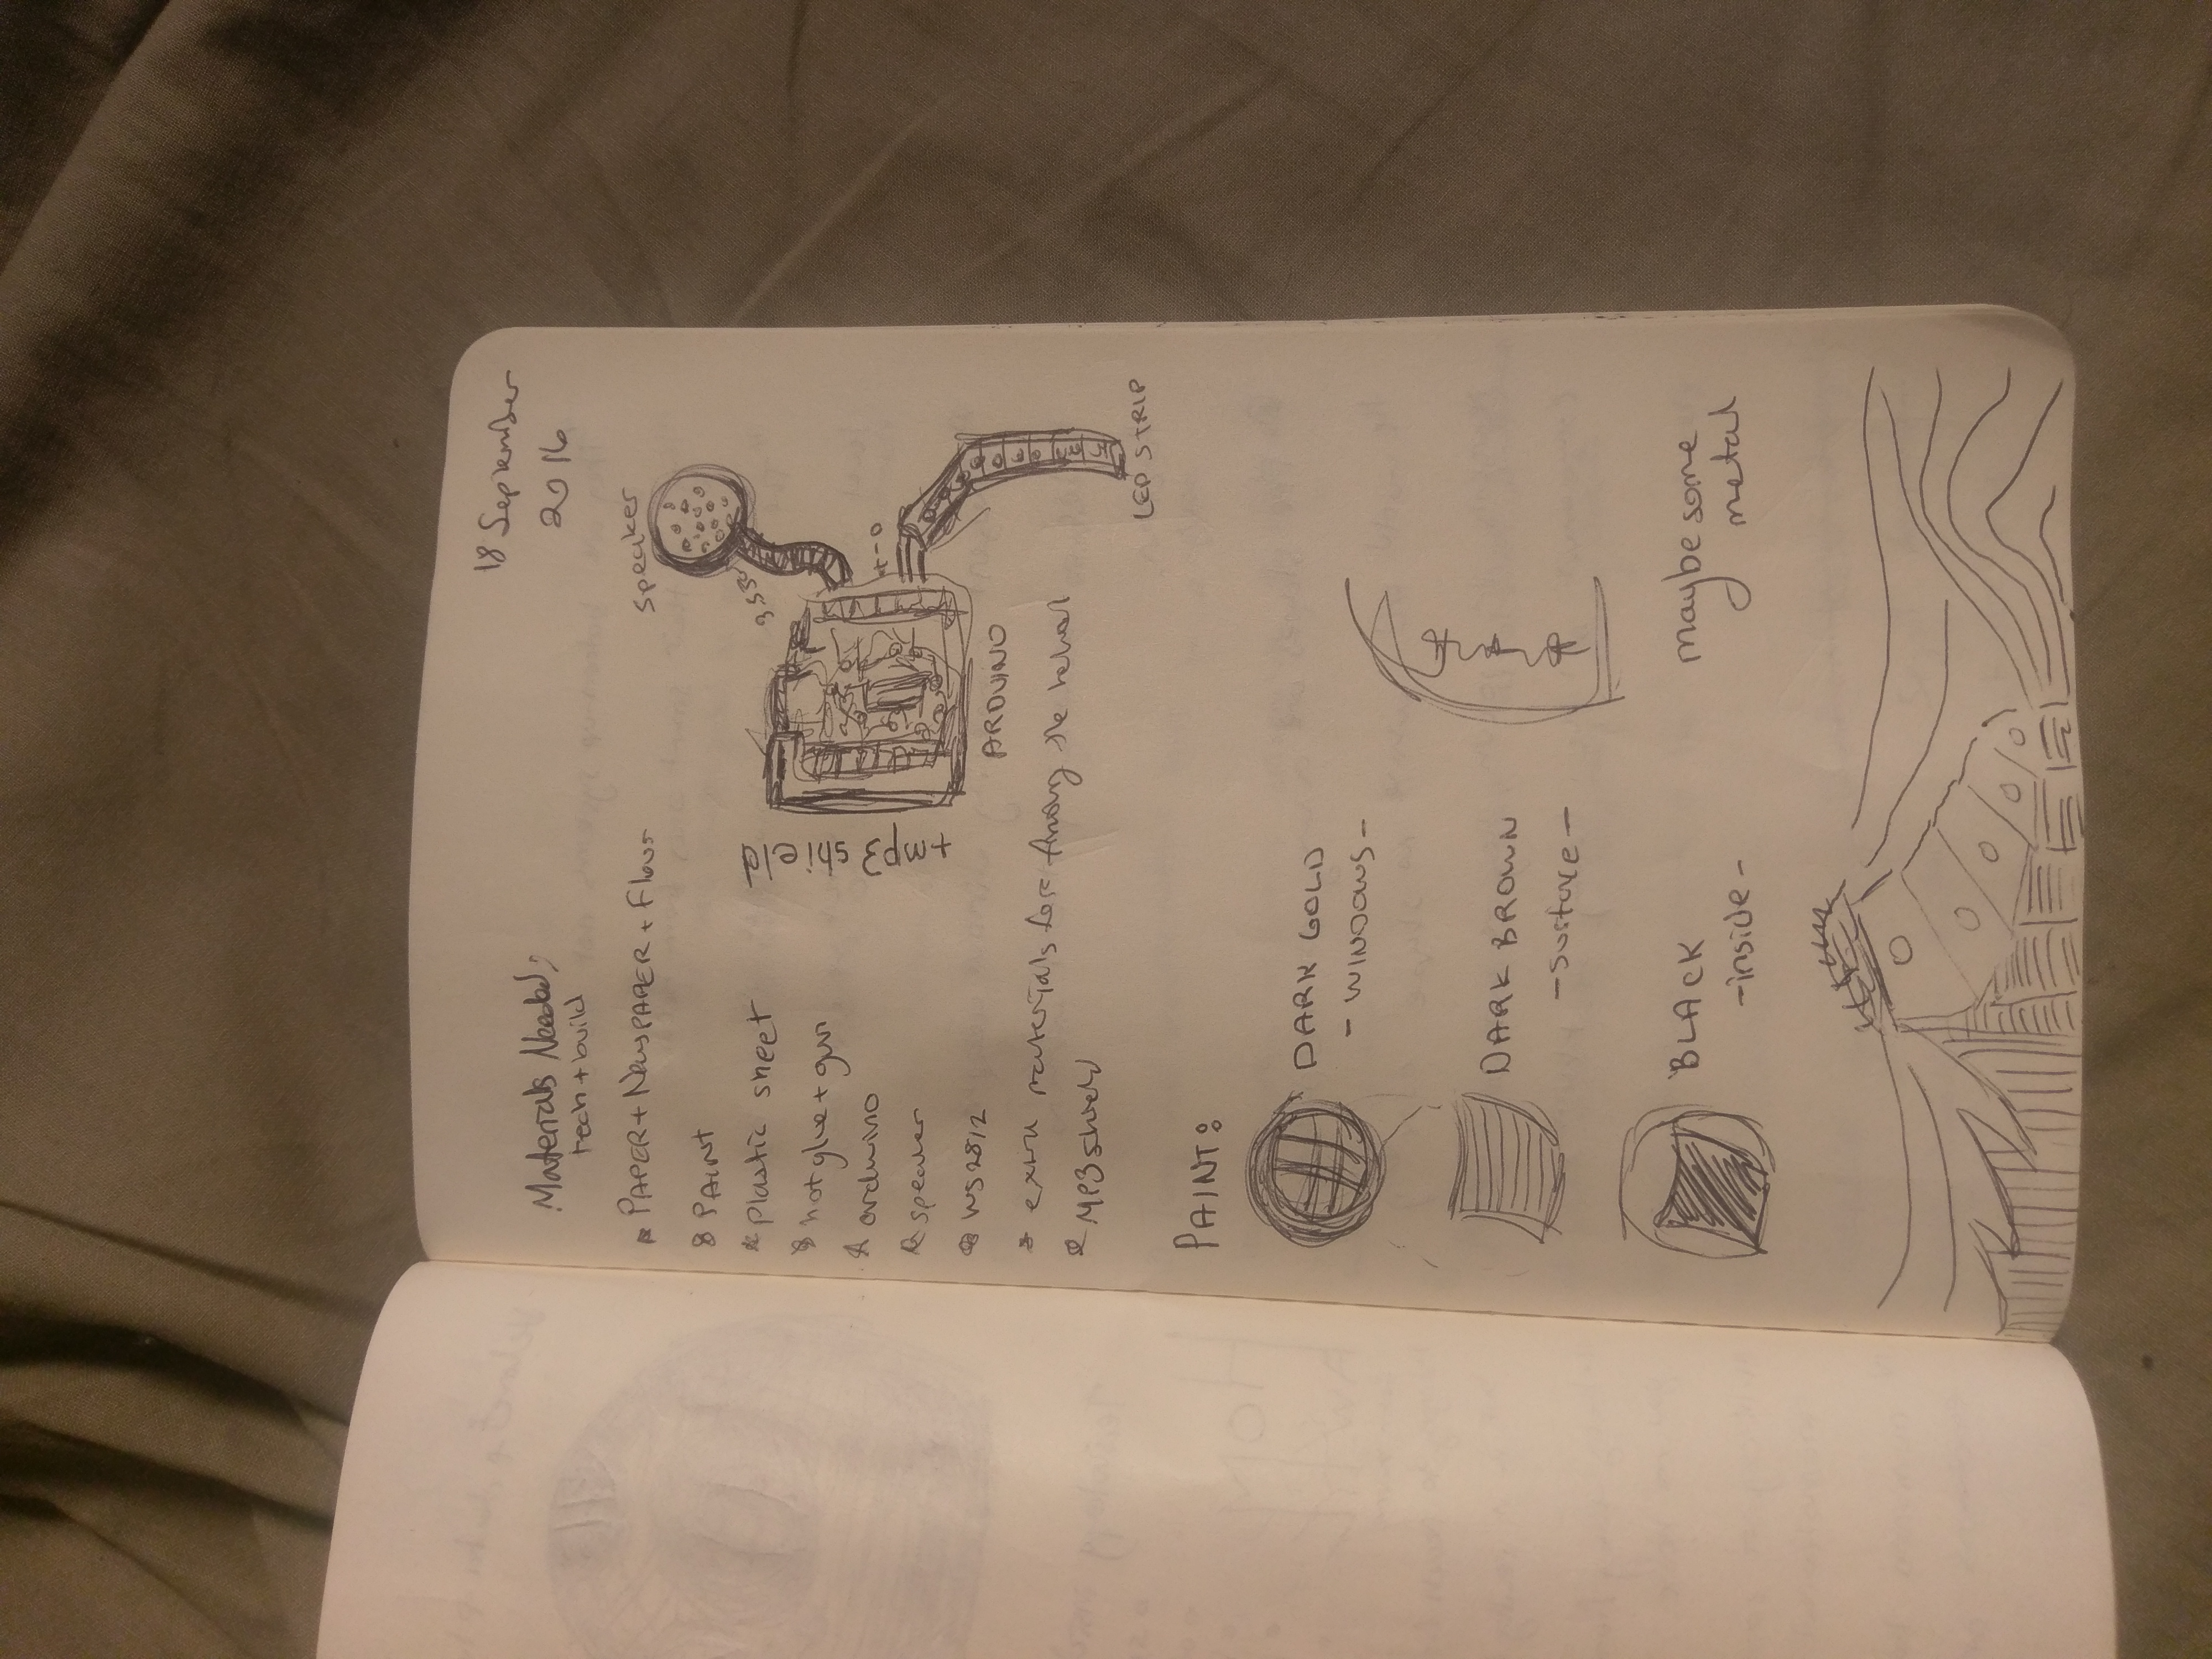 18 September
2016
Materials Needed,
tech + build
PAPER + NewsPAPER + Flour
PAINT
Plastic sheet
hot glue + gun
arduino
speaker
WS2812
extra materials for
MP3 shield
speaker
3.5
+ - 0
LED STRIP
ARDUINO
+ mp3
shield
PAINT:
DARK GOLD
- WINDOWS -
DARK BROWN
- surface -
BLACK
- inside -
maybe some
metal